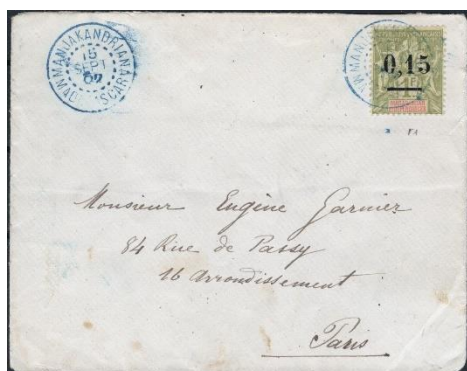 MANJAKANDRIANA
15
SEPT
02
MADAGASCAR
MANJ
0,15
Monsieur Eugène Garnier
84 Rue de Passy
16 Arrondissement
Paris